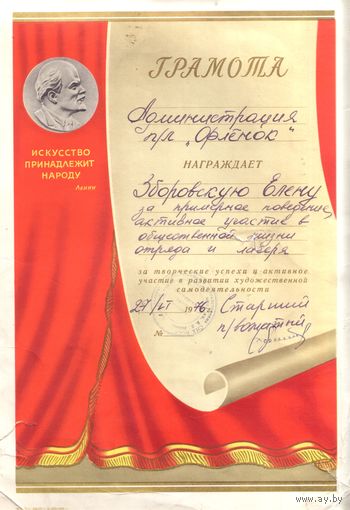 ГРАМОТА
ИСКУССТВО
ПРИНАДЛЕЖИТ
НАРОДУ
Ленин
Администрация
п/л "Орлёнок"
НАГРАЖДАЕТ
Зборовскую Елену
за примерное поведение,
активное участие в
общественной жизни
отряда и лагеря
за творческие успехи и активное
участие в развитии художественной
самодеятельности
27/VI 1976
Старший
п/вожатый
№
www.ay.by